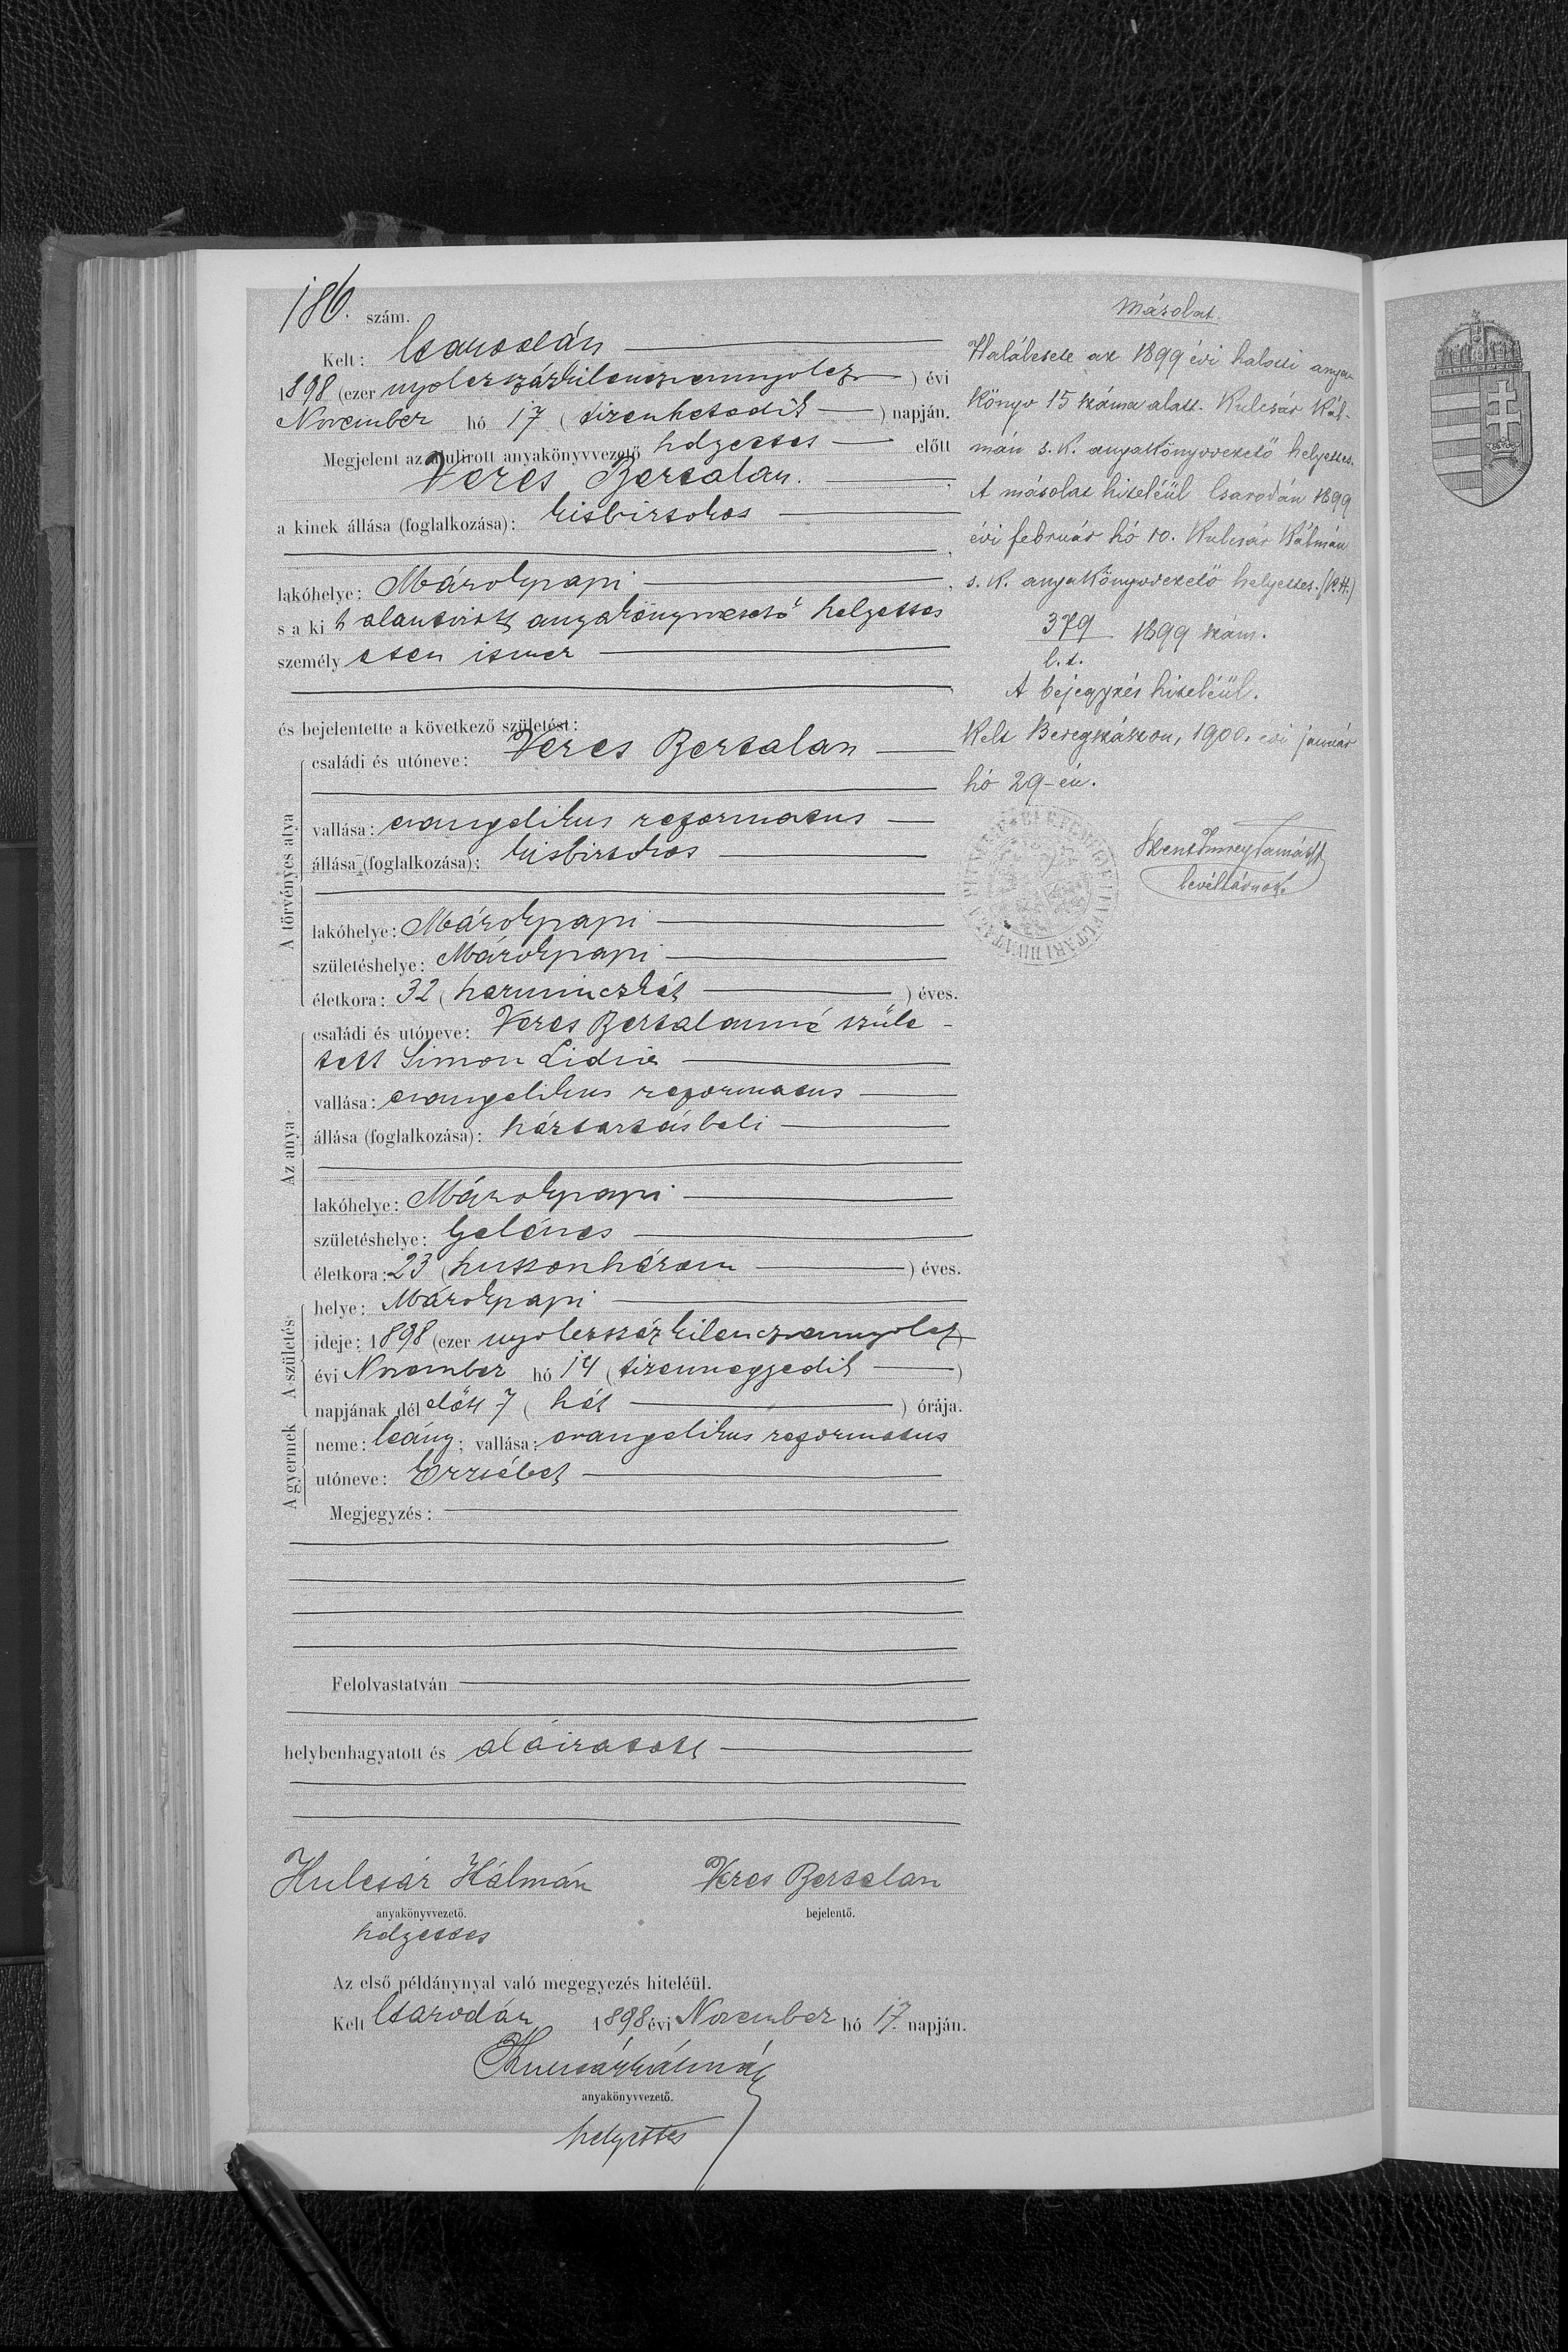 186. szám.
Kelt: Csarodán
1898 (ezer nyolczszázkilenczvennyolcz) évi
November hó 17 (tizenhetedik) napján.
Megjelent az alulirott anyakönyvvezető helyettes előtt
Veres Bertalan.
a kinek állása (foglalkozása): kisbirtokos
lakóhelye: Márokpapi
s a kit alantirott anyakönyvvezető helyettes
személyesen ismer
és bejelentette a következő születést:
A törvényes atya
családi és utóneve: Veres Bertalan
vallása: evangelikus reformatus
állása (foglalkozása): kisbirtokos
lakóhelye: Márokpapi
születéshelye: Márokpapi
életkora: 32 (harminczkét) éves.
Az anya
családi és utóneve: Veres Bertalanné szüle-
tett Simon Lidia
vallása: evangelikus reformatus
állása (foglalkozása): háztartásbeli
lakóhelye: Márokpapi
születéshelye: Gelénes
életkora: 23 (huszonhárom) éves.
A születés
helye: Márokpapi
ideje: 1898 (ezer nyolczszázkilenczvennyolcz)
évi November hó 14 (tizennegyedik)
napjának délelőtt 7 (hét) órája.
A gyermek
neme: leány; vallása: evangelikus reformatus
utóneve: Erzsébet
Megjegyzés:
Felolvastatván
helybenhagyatott és aláiratott
Kulcsár Kálmán Veres Bertalan
anyakönyvvezető. bejelentő.
helyettes
Az első példánynyal való megegyezés hiteléül.
Kelt Csarodán 1898 évi November hó 17 napján.
Kulcsár Kálmán
anyakönyvvezető.
helyettes
Másolat.
Halálesete az 1899 évi halotti anya-
könyv 15 száma alatt. Kulcsár Kál-
mán s. k. anyakönyvvezető helyettes.
A másolat hiteléül Csarodán 1899
évi február hó 10. Kulcsár Kálmán
s. k. anyakönyvvezető helyettes. (P.H.)
379 1899 szám.
l. t.
A bejegyzés hiteléül.
Kelt Beregszászon, 1900. évi január
hó 29-én.
levéltárnok.